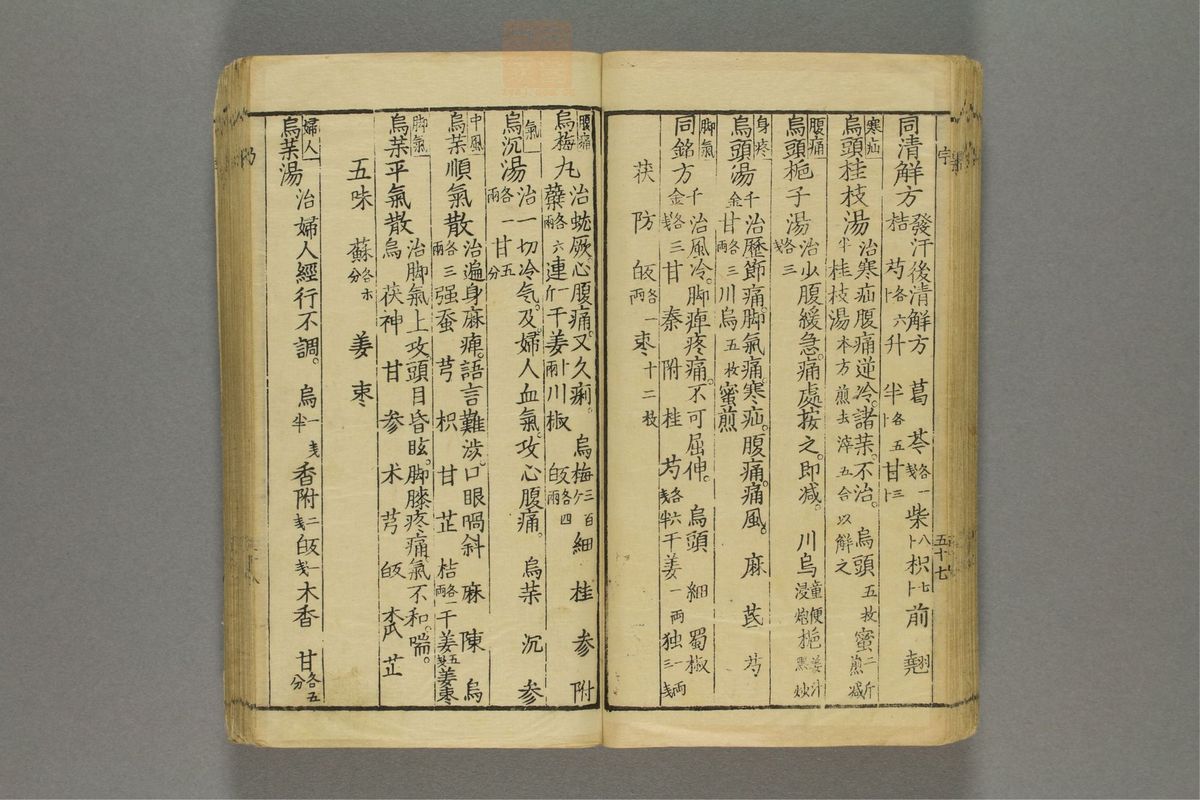 同清解方 發汗後清解方 葛 芩各一戔 柴八卜 枳七卜 前 翹
桔 芍各六卜 升 半各五卜 甘三卜
寒疝 烏頭桂枝湯 治寒疝腹痛逆冷。諸藥。不治。 烏頭五枚 蜜二斤煎減
半 桂枝湯本方煎去滓五合以解之
腹痛 烏頭梔子湯 治少腹緩急。痛處按之。即减。 川烏童便浸炮 梔姜汁黑炒
各三戔
身疼 烏頭湯千金 治歷節痛。脚氣痛。寒疝。腹痛。痛風。 麻 芪 芍
甘各三兩 川烏五枚 蜜煎
脚氣 同銘方千金 治風冷。脚痺疼痛。不可屈伸。 烏頭 細 蜀椒
各三戔 甘 秦 附 桂 芍各六戔半 干姜一兩 独一兩三戔
茯 防 皈各一兩 棗十二枚
五十七
腹痛 烏梅丸 治蚘厥。心腹痛。又久痢。 烏梅三百个 細 桂 參 附
蘗各六兩 連一斤 干姜十兩 川椒 皈各四兩
氣 烏沉湯 治一切冷气。及。婦人血氣。攻心腹痛。 烏茱 沉 參
各一兩 甘五分
中風 烏茱順氣散 治遍身麻痺。語言難涉。口眼喎斜 麻 陳 烏
各三兩 强蚕 芎 枳 甘 芷 桔各一兩 干姜五戔 姜棗
脚氣 烏茱平氣散 治脚氣上攻。頭目昏眩。脚膝疼痛。氣不和。喘。
烏 茯神 甘 參 术 芎 皈 木瓜 芷
五味 蘇各木分 姜 棗
婦人 烏茱湯 治婦人經行不調。 烏一戔半 香附二戔 皈一戔 木香 甘各五分